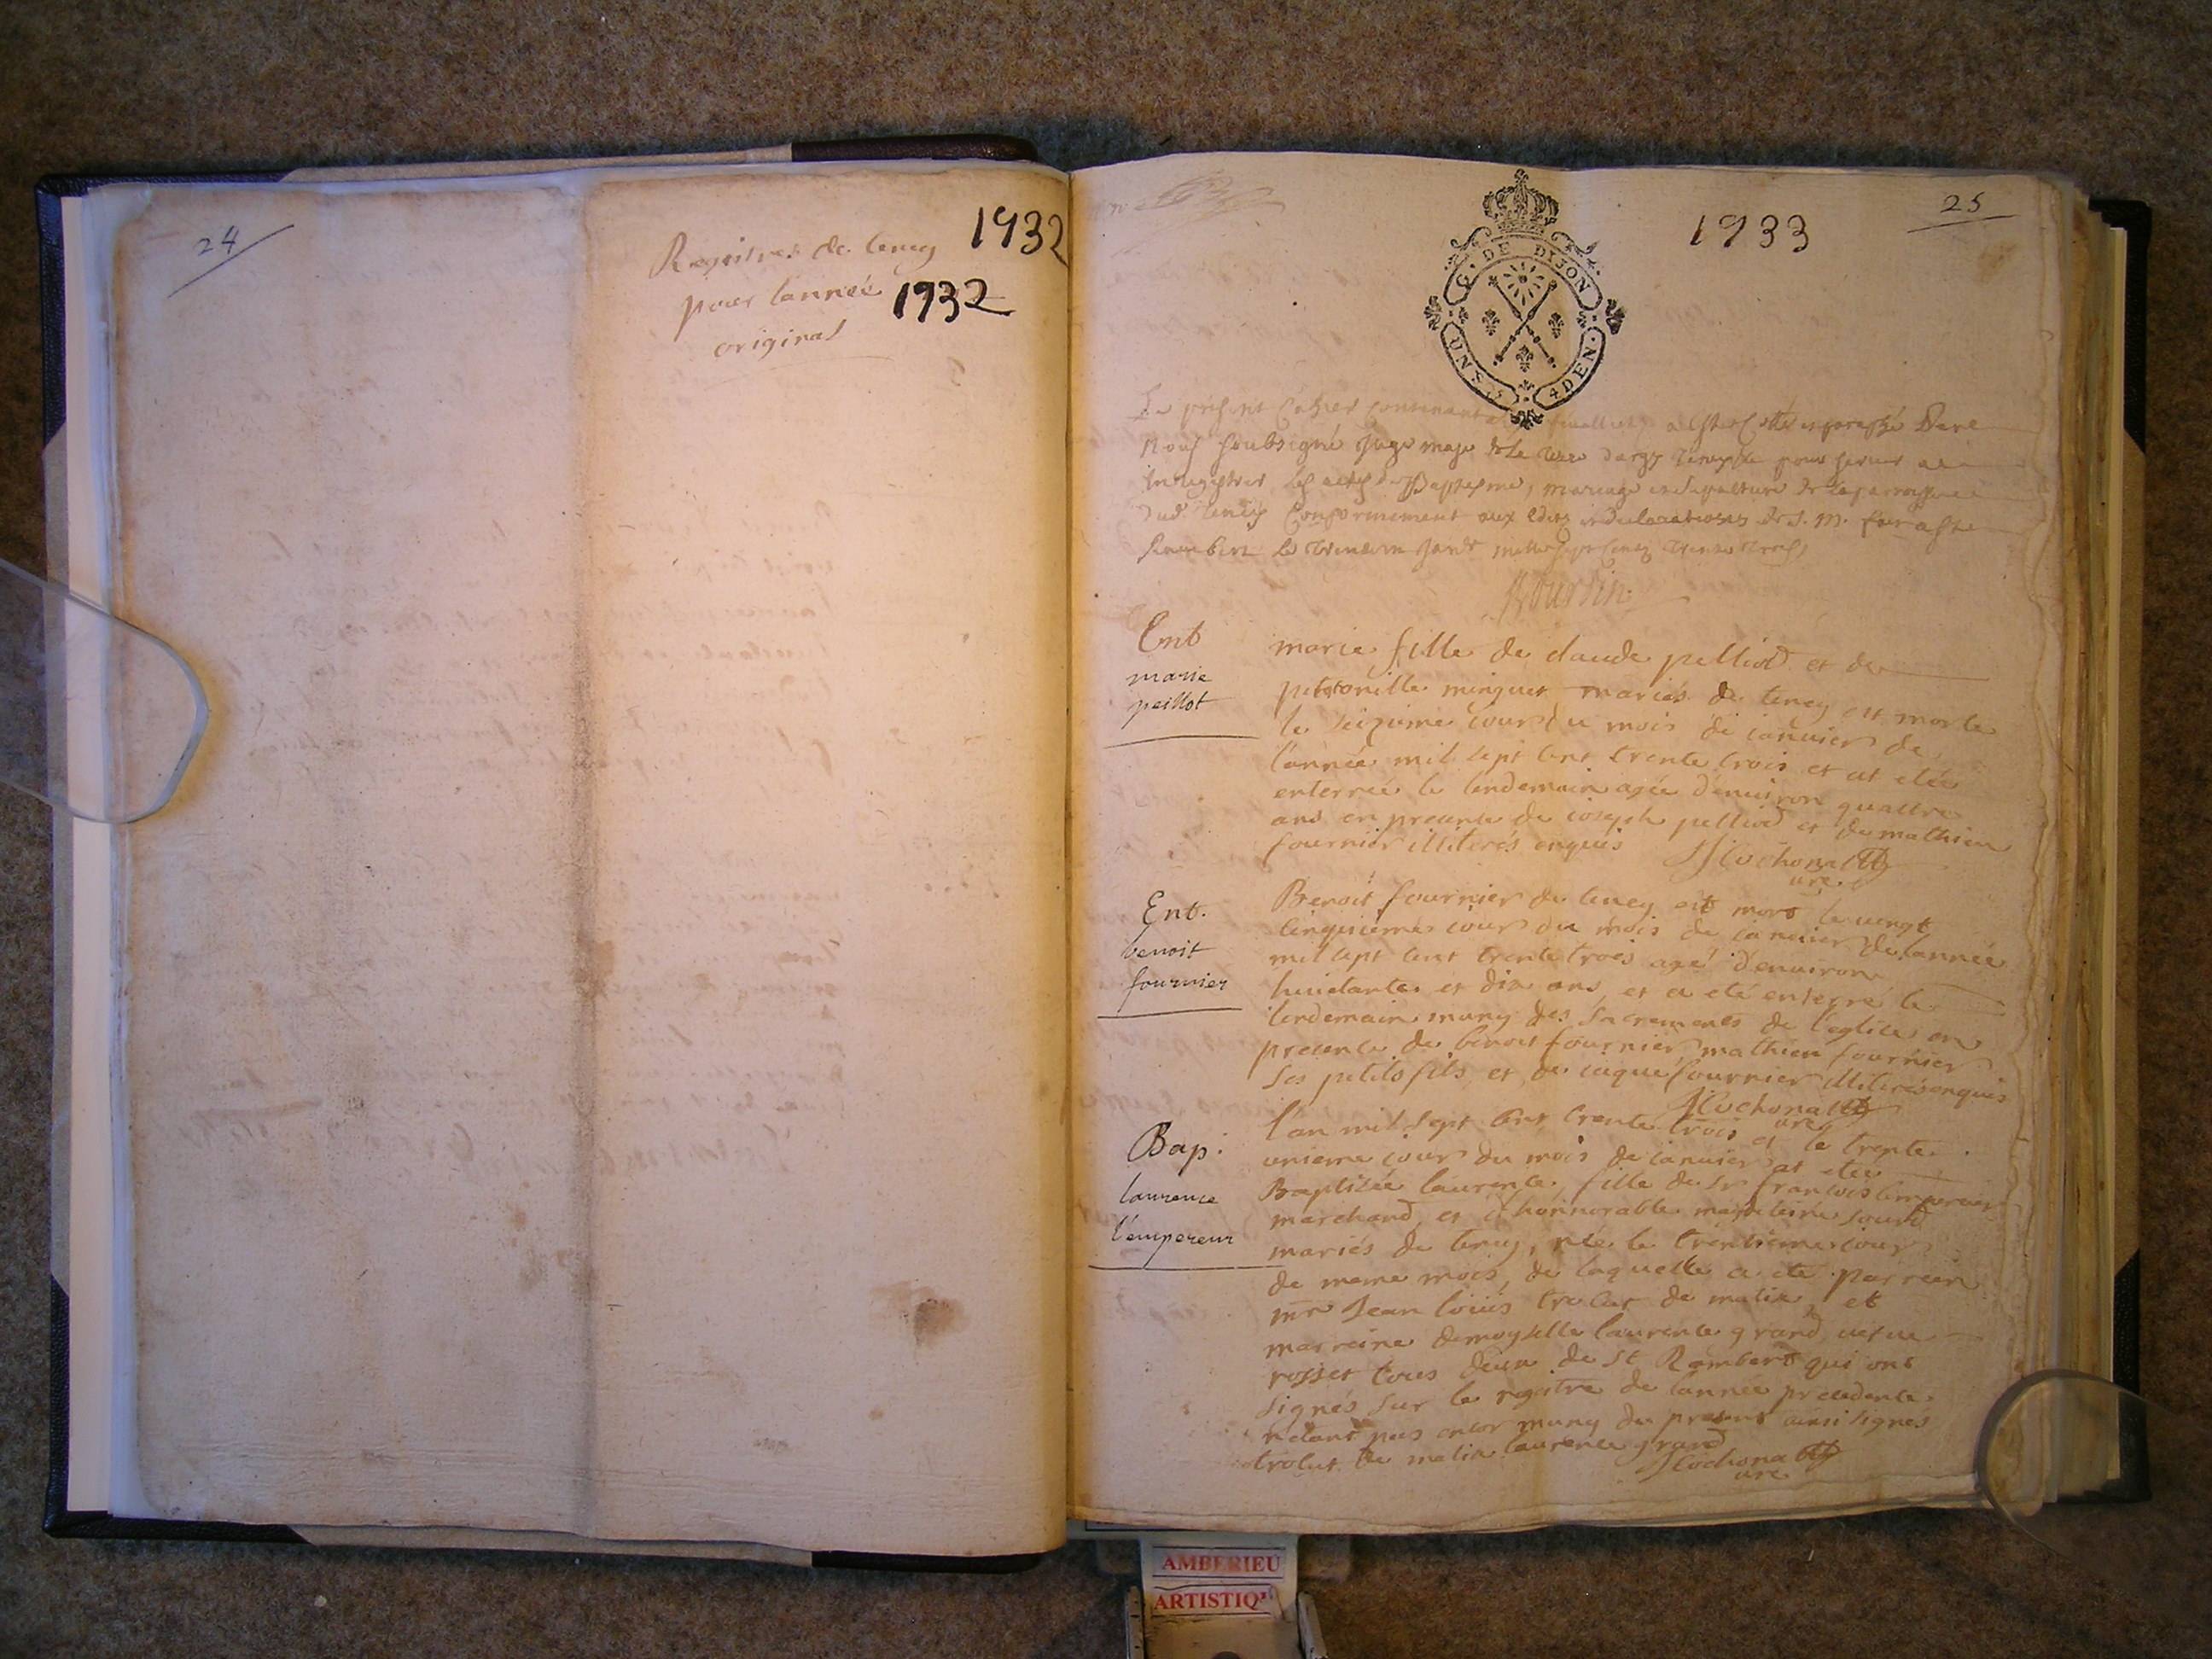 24
1932
Registres de tency
pour lannée 1932
original
25
1933
G. DE DIJON
UNS
4 DEN.
Le présent Cahier Contenant
Nous soubsigné Juge maje pour servir a
les actes de Baptesme, mariage
Conformement aux edits declarations de S. M.
le mille sept cents trente trois
Ent
marie
peillot
marie fille de claude pelliod et de
petronille minguet mariés de tency est morte
le seizieme jour du mois de ianuier de
l'année mil sept cent trente trois et at etée
enterrée le lendemain agée d'enuiron quattre
ans en presence de ioseph pelliod et de mathieu
fournier illiterés enquis J Cochonat
curé
Ent.
benoit
fournier
Benoit fournier de tency est mort le uingt
cinquieme iour du mois de ianuier de l'année
mil sept cent trente trois agé d'enuiron
huictante et dix ans, et a eté enterré le
lendemain muny des sacrements de l'eglise en
presence de benoit fournier mathieu fournier
ses petits fils et de iaque fournier illiterés enquis
J Cochonat
curé
Bap.
laurence
l'empereur
l'an mil sept cent trente trois et le trente
unieme iour du mois de ianuier at etée
Baptisée laurence fille de sr francois lempereur
marchand et d'honnorable madeleine
mariés de tency, née le trentieme iour
de meme mois, de laquelle a eté parrein
mr Jean loüis trocut de matix, et
marreine demoyselle laurence grand uesue
rosset tous deux de St Rambert qui ont
signés sur le registre de l'année precedente
n'etant pas encor muny du present ainsi signés
trocut de matix laurence grand
J Cochonat
curé
AMBERIEU
ARTISTIQ